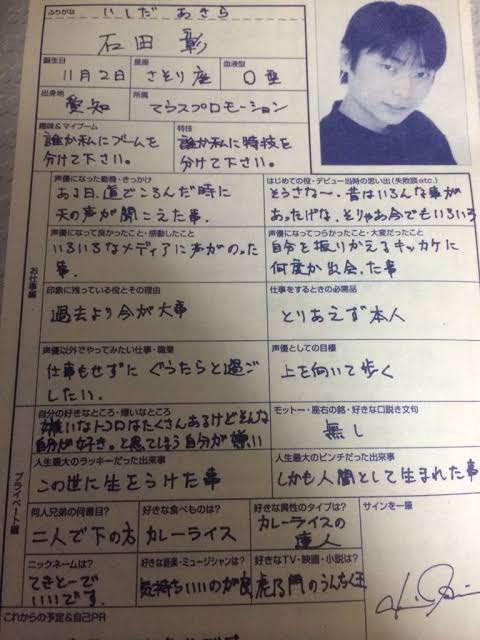 ふりがな
いしだ あきら
石田 彰
誕生日
11月2日
星座
さそり座
血液型
O型
出身地
愛知
所属
てうスプロモーション
趣味&マイブーム
誰か私にブームを
分けて下さい。
特技
誰か私に特技を
分けて下さい。
お仕事編
声優になった動機・きっかけ
ある日、道でころんだ時に
天の声が聞こえた事.
はじめての役・デビュー当時の思い出(失敗談etc.)
そうさな〜. 昔はいろんな事が
あったげな. そりゃあ今でもいろいろ
声優になって良かったこと・感動したこと
いろいろなメディアに声がのった
事.
声優になってつらかったこと・大変だったこと
自分を振りかえるキッカケに
何度か出会った事
印象に残っている役とその理由
過去より今が大事
仕事をするときの必需品
とりあえず本人
声優以外でやってみたい仕事・職業
仕事もせずに ぐうたらと過ご
したい.
声優としての目標
上を向いて歩く
プライベート編
自分の好きなところ・嫌いなところ
嫌いなトコロはたくさんあるけどそんな
自分が好き。と思てしまう自分が嫌い
モットー・座右の銘・好きな口説き文句
無し
人生最大のラッキーだった出来事
この世に生をうけた事
人生最大のピンチだった出来事
しかも人間として生まれた事
何人兄弟の何番目?
二人で下の方
好きな食べものは?
カレーライス
好きな異性のタイプは?
カレーライスの
達人
サインを一筆
ニックネームは?
てきとーで
いいです.
好きな音楽・ミュージシャンは?
気持ちいいのが良
好きなTV・映画・小説は?
虎ノ門のうんちく王
これからの予定&自己PR